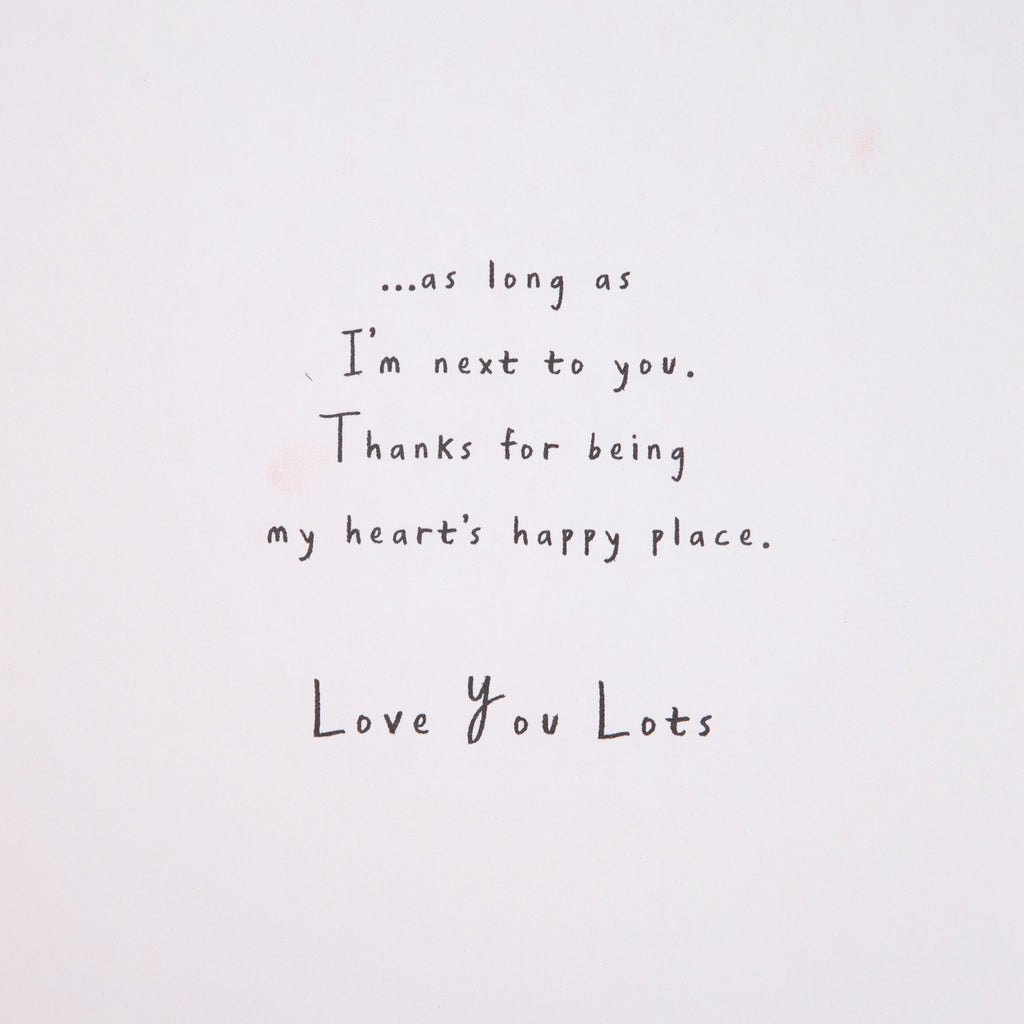 ...as long as
I'm next to you.
Thanks for being
my heart's happy place.
Love You Lots